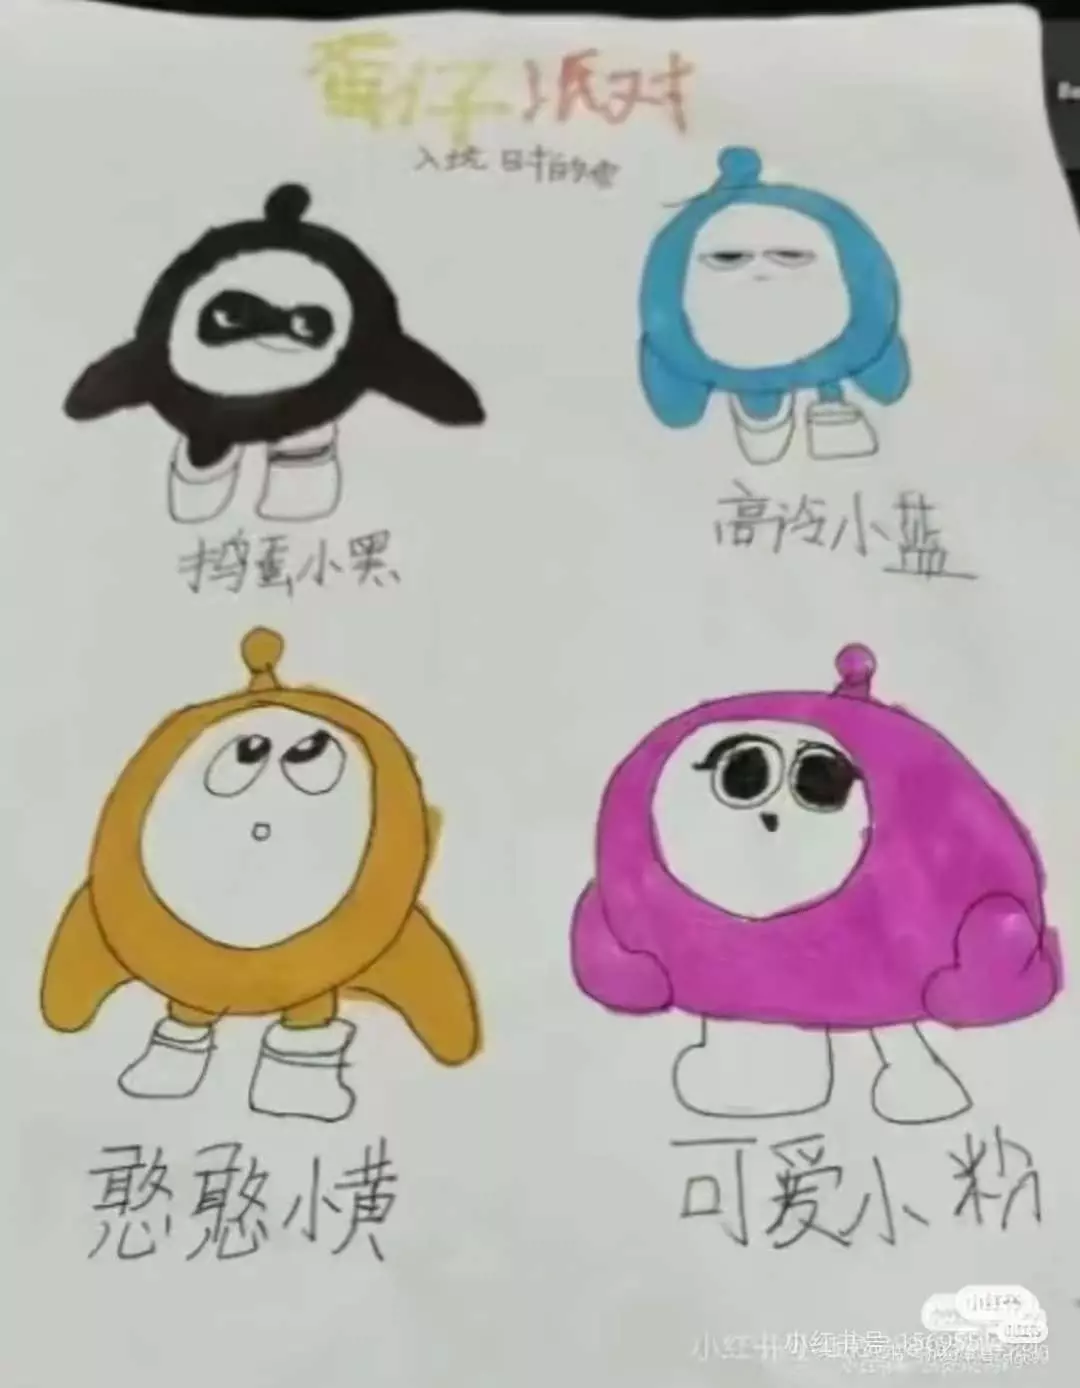 蛋仔派对
入坑时的
捣蛋小黑
高冷小蓝
憨憨小黄
可爱小粉
小红书
小红书号